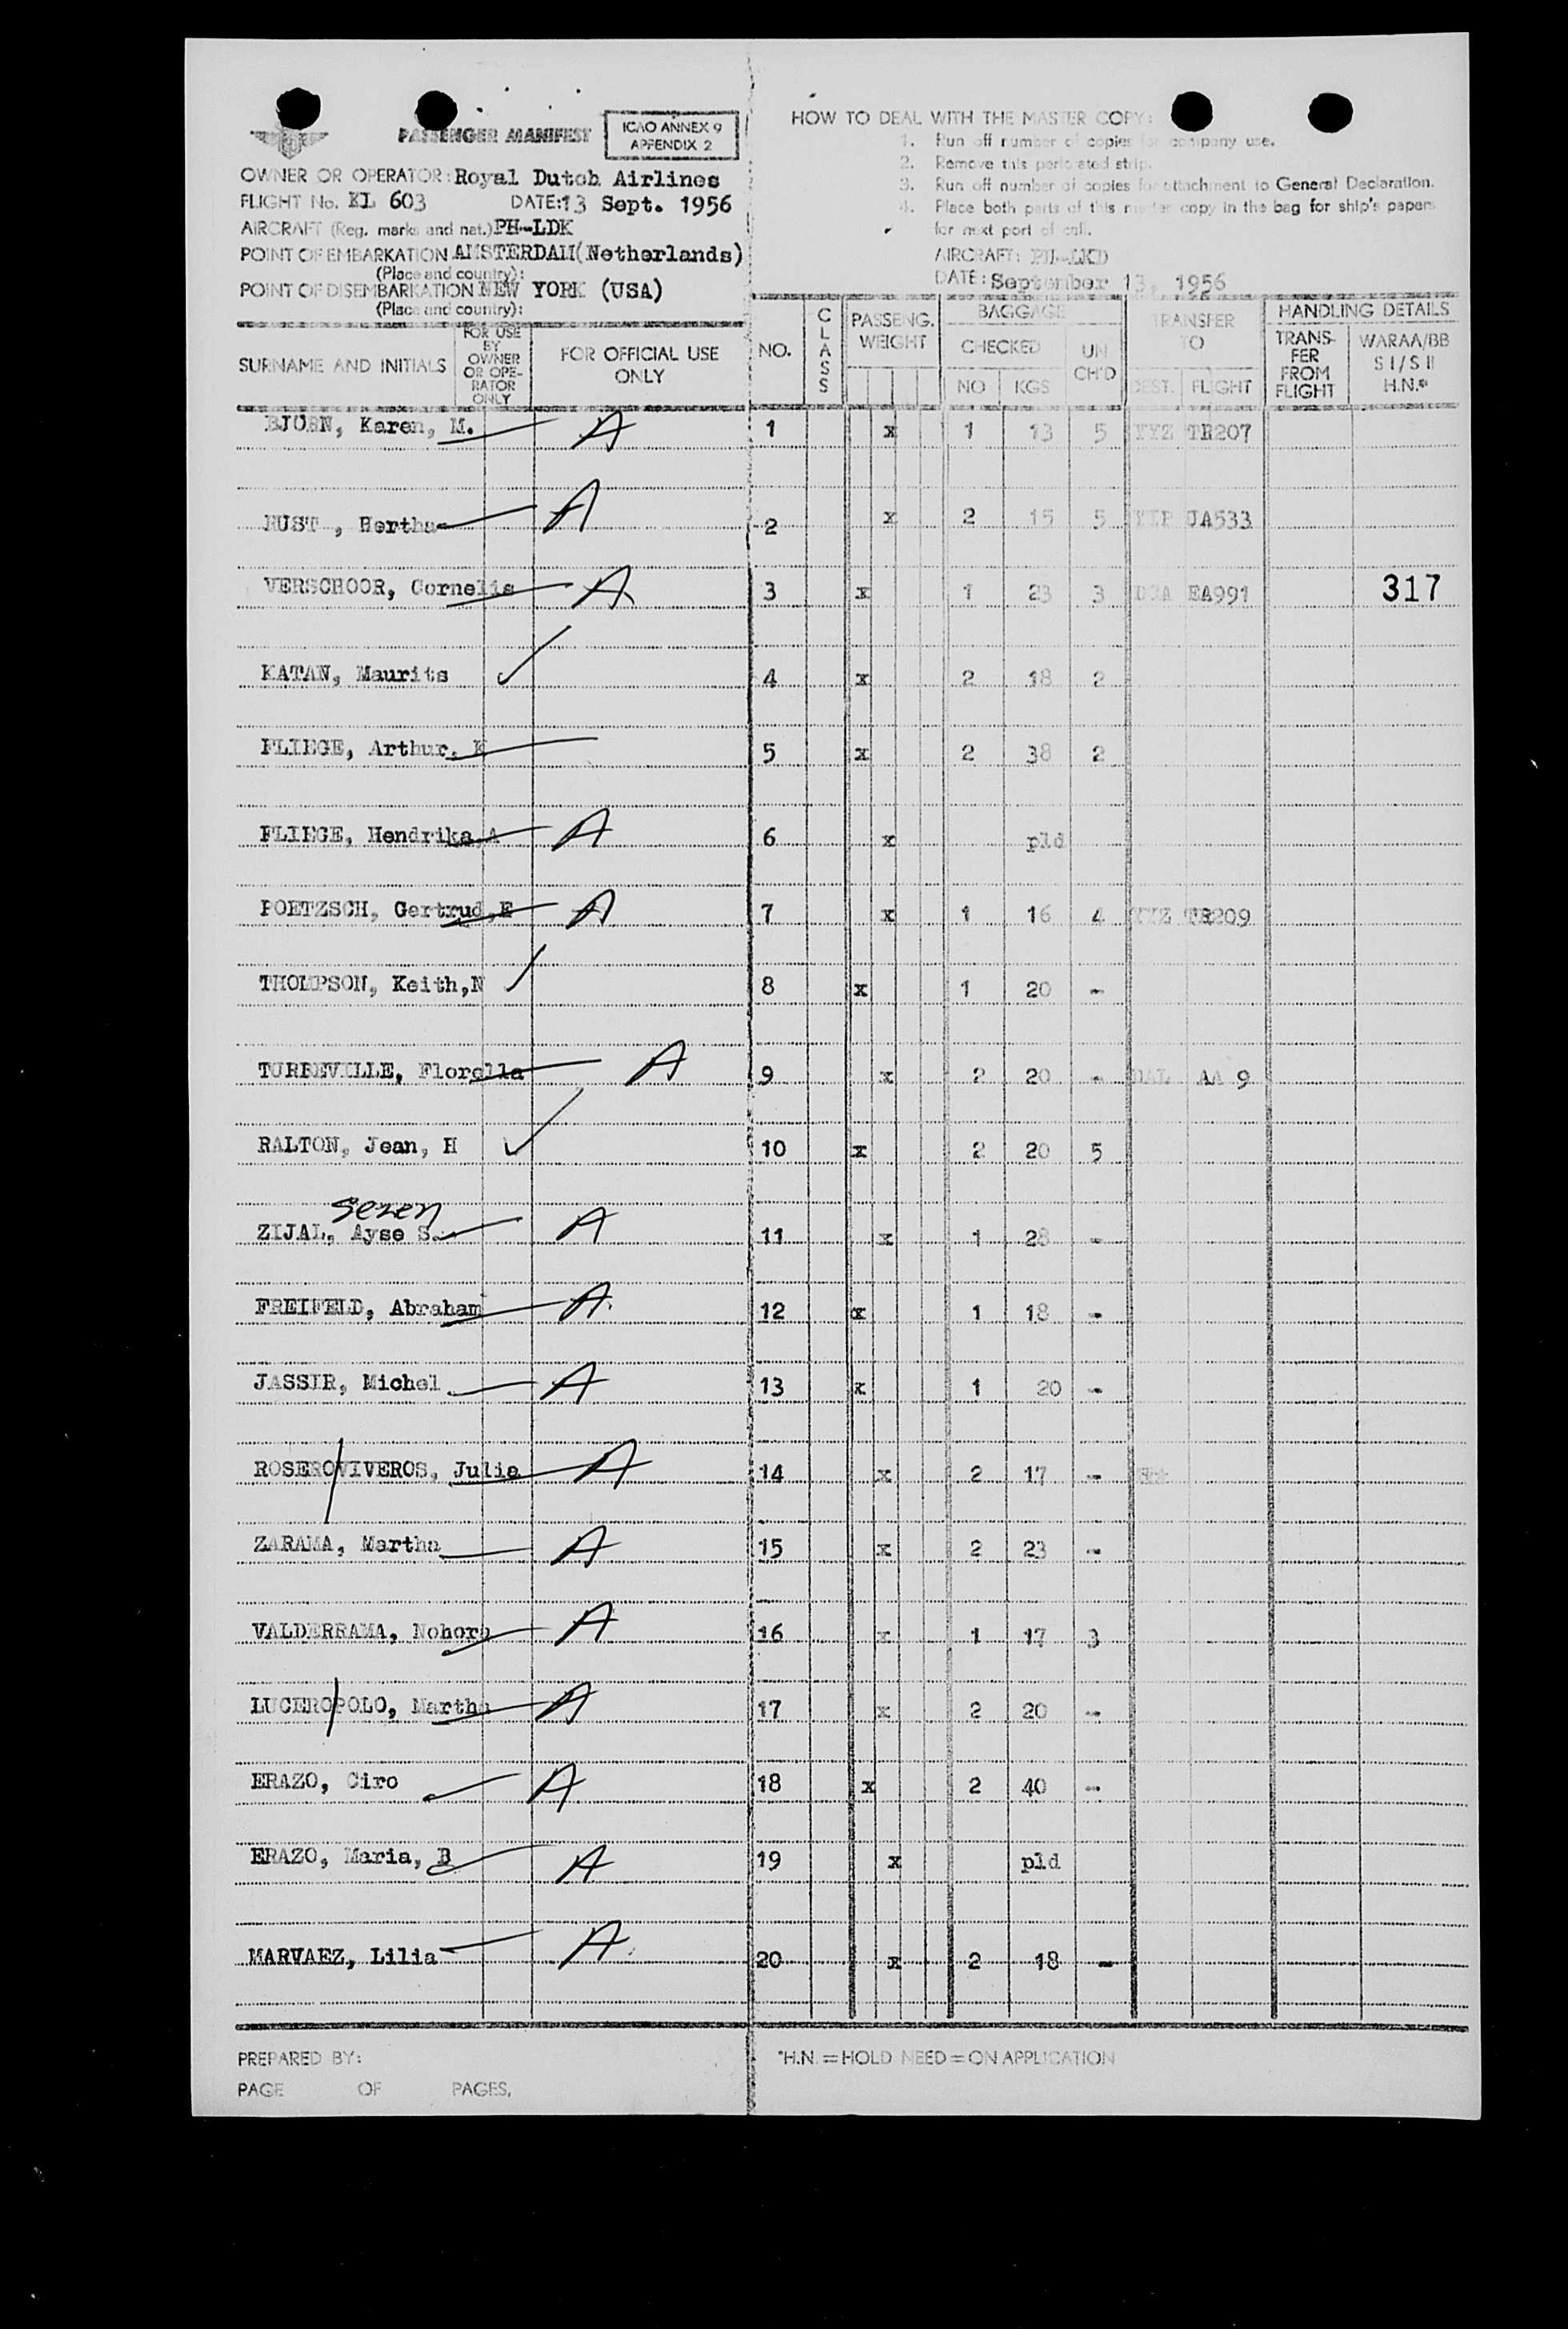 PASSENGER MANIFEST
ICAO ANNEX 9
APPENDIX 2
OWNER OR OPERATOR: Royal Dutch Airlines
FLIGHT No. KL 603 DATE: 13 Sept. 1956
AIRCRAFT (Reg. marks and nat.) PH-LDK
POINT OF EMBARKATION AMSTERDAM (Netherlands)
(Place and country):
POINT OF DISEMBARKATION NEW YORK (USA)
(Place and country):
HOW TO DEAL WITH THE MASTER COPY:
1. Run off number of copies for company use.
2. Remove this perforated strip.
3. Run off number of copies for attachment to General Declaration.
4. Place both parts of this master copy in the bag for ship's papers
for next port of call.
AIRCRAFT:
DATE: September 13, 1956
SURNAME AND INITIALS FOR USE BY OWNER OR OPE-RATOR ONLY FOR OFFICIAL USE ONLY NO. CLASS PASSENG. WEIGHT BAGGAGE CHECKED NO KGS UN CH'D TRANSFER TO DEST. FLIGHT HANDLING DETAILS TRANS-FER FROM FLIGHT WARAA/BB S I / S II H.N.*
BJORN, Karen, M. A 1 x 1 13 5 YYZ TR207
Hertha A 2 x 2 15 5 JA533
VERSCHOOR, Cornelis A 3 x 1 23 3 DCA EA991 317
KATAN, Maurits 4 x 2 18 2
FLIEGE, Arthur, K 5 x 2 38 2
FLIEGE, Hendrika,A A 6 x pld
POETZSCH, Gertrud,E A 7 x 1 16 4 YYZ TR209
THOMPSON, Keith,N 8 x 1 20 -
TURBEVILLE, Florella A 9 x 2 20 - DAL AA 9
RALTON, Jean, H 10 x 2 20 5
Sezen
ZIJAL, Ayse S. A 11 x 1 28 -
FREIFELD, Abraham A 12 x 1 18 -
JASSIR, Michel A 13 x 1 20 -
ROSERO/VIVEROS, Julia A 14 x 2 17 -
ZARAMA, Martha A 15 x 2 23 -
VALDERRAMA, Nohora A 16 x 1 17 3
LUCERO/POLO, Martha A 17 x 2 20 -
ERAZO, Ciro A 18 x 2 40 -
ERAZO, Maria, B A 19 x pld
MARVAEZ, Lilia A 20 x 2 18 -
PREPARED BY:
PAGE OF PAGES.
*H.N. = HOLD NEED = ON APPLICATION